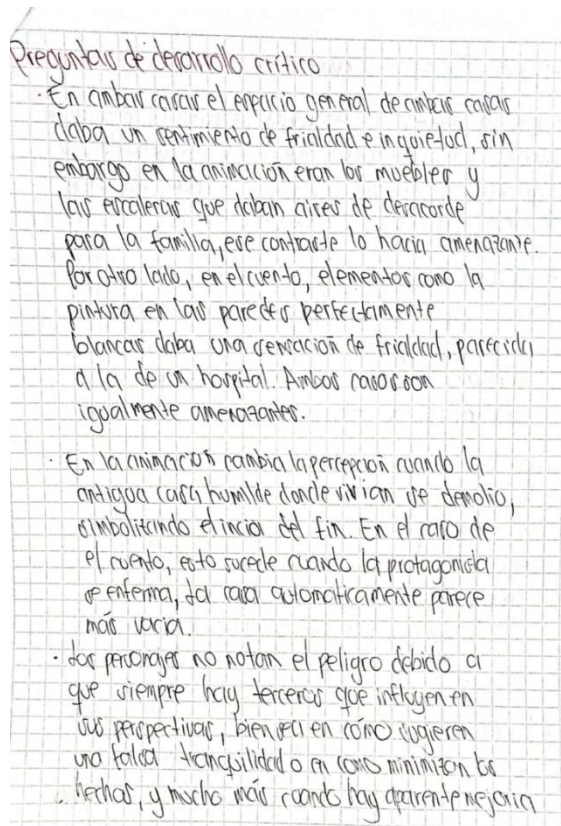 Preguntas de desarrollo crítico
· En ambas casas el espacio general de ambas casas
daba un sentimiento de frialdad e inquietud, sin
embargo en la animación eran los muebles y
las escaleras que daban aires de desacorde
para la familia, ese contraste lo hacia amenazante.
Por otro lado, en el cuento, elementos como la
pintura en las paredes perfectamente
blancas daba una sensación de frialdad, parecida
a la de un hospital. Ambos casos son
igualmente amenazantes.
· En la animación cambia la percepción cuando la
antigua casa humilde donde vivian se demolio,
simbolizando el incio del fin. En el caso de
el cuento, esto sucede cuando la protagonista
se enferma, la casa automaticamente parece
más vacia.
· Los personajes no notan el peligro debido a
que siempre hay terceros que influyen en
sus perspectivas, bien sea en cómo sugieren
una falsa tranquilidad o en como minimizan los
hechos, y mucho más cuando hay aparente mejoria